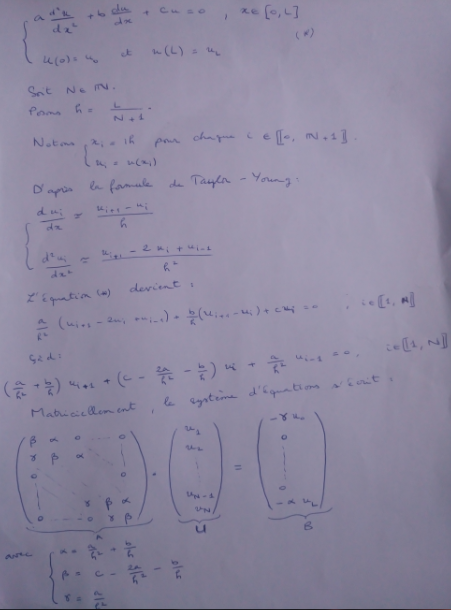 a d²u/dx² + b du/dx + cu = 0 , x ∈ [0, L]
(*)
u(0) = u₀ et u(L) = u_L
Soit N ∈ ℕ.
Posons h = L/(N+1).
Notons { x_i = ih pour chaque i ∈ ⟦0, N+1⟧.
u_i = u(x_i)
D'après la formule de Taylor-Young:
du_i/dx ≃ (u_{i+1} - u_i)/h
d²u_i/dx² ≃ (u_{i+1} - 2u_i + u_{i-1})/h²
L'équation (*) devient :
a/h² (u_{i+1} - 2u_i + u_{i-1}) + b/h (u_{i+1} - u_i) + cu_i = 0 , i ∈ ⟦1, N⟧
çàd:
(a/h² + b/h) u_{i+1} + (c - 2a/h² - b/h) u_i + a/h² u_{i-1} = 0, i ∈ ⟦1, N⟧
Matriciellement, le système d'équations s'écrit :
β α 0 ... 0 u₁ -γ u₀
γ β α u₂ 0
0 0
γ β α u_{N-1} 0
0 ... 0 γ β u_N -α u_L
A . U = B
avec { α = a/h² + b/h
β = c - 2a/h² - b/h
γ = a/h²